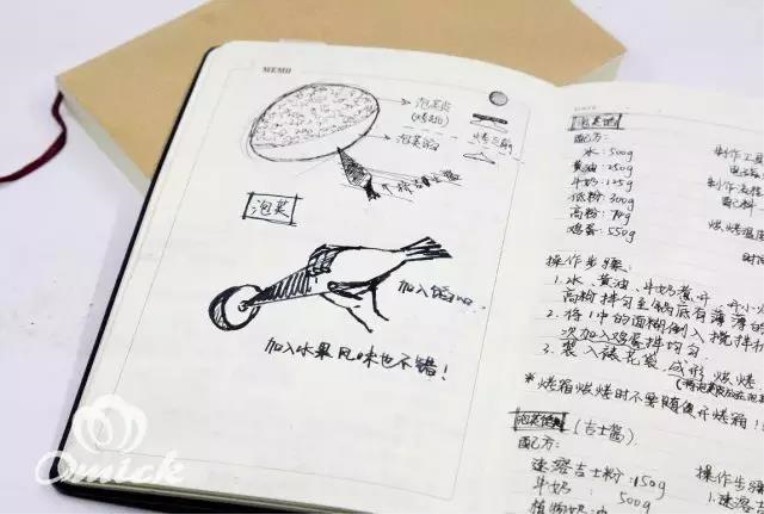 MEMO
泡芙
泡芙馅
加入馅
加入水果风味也不错!
配方:
水:500g
黄油:250g
牛奶:125g
低粉:300g
高粉:
鸡蛋:550g
制作工具
制作流程
配料
烘烤温度
时间
操作步骤:
1.水、黄油、牛奶煮开,开小火
高粉拌匀至锅底有薄薄的
2.将1中的面糊倒入搅拌机
次加入鸡蛋拌均匀.
3.装入裱花袋,成形烘烤.
*烤箱烘烤时不要随便开烤箱!
(吉士酱)
配方:
速溶吉士粉:150g
牛奶: 500g
植物奶油
操作步骤
1.速溶吉
Omick